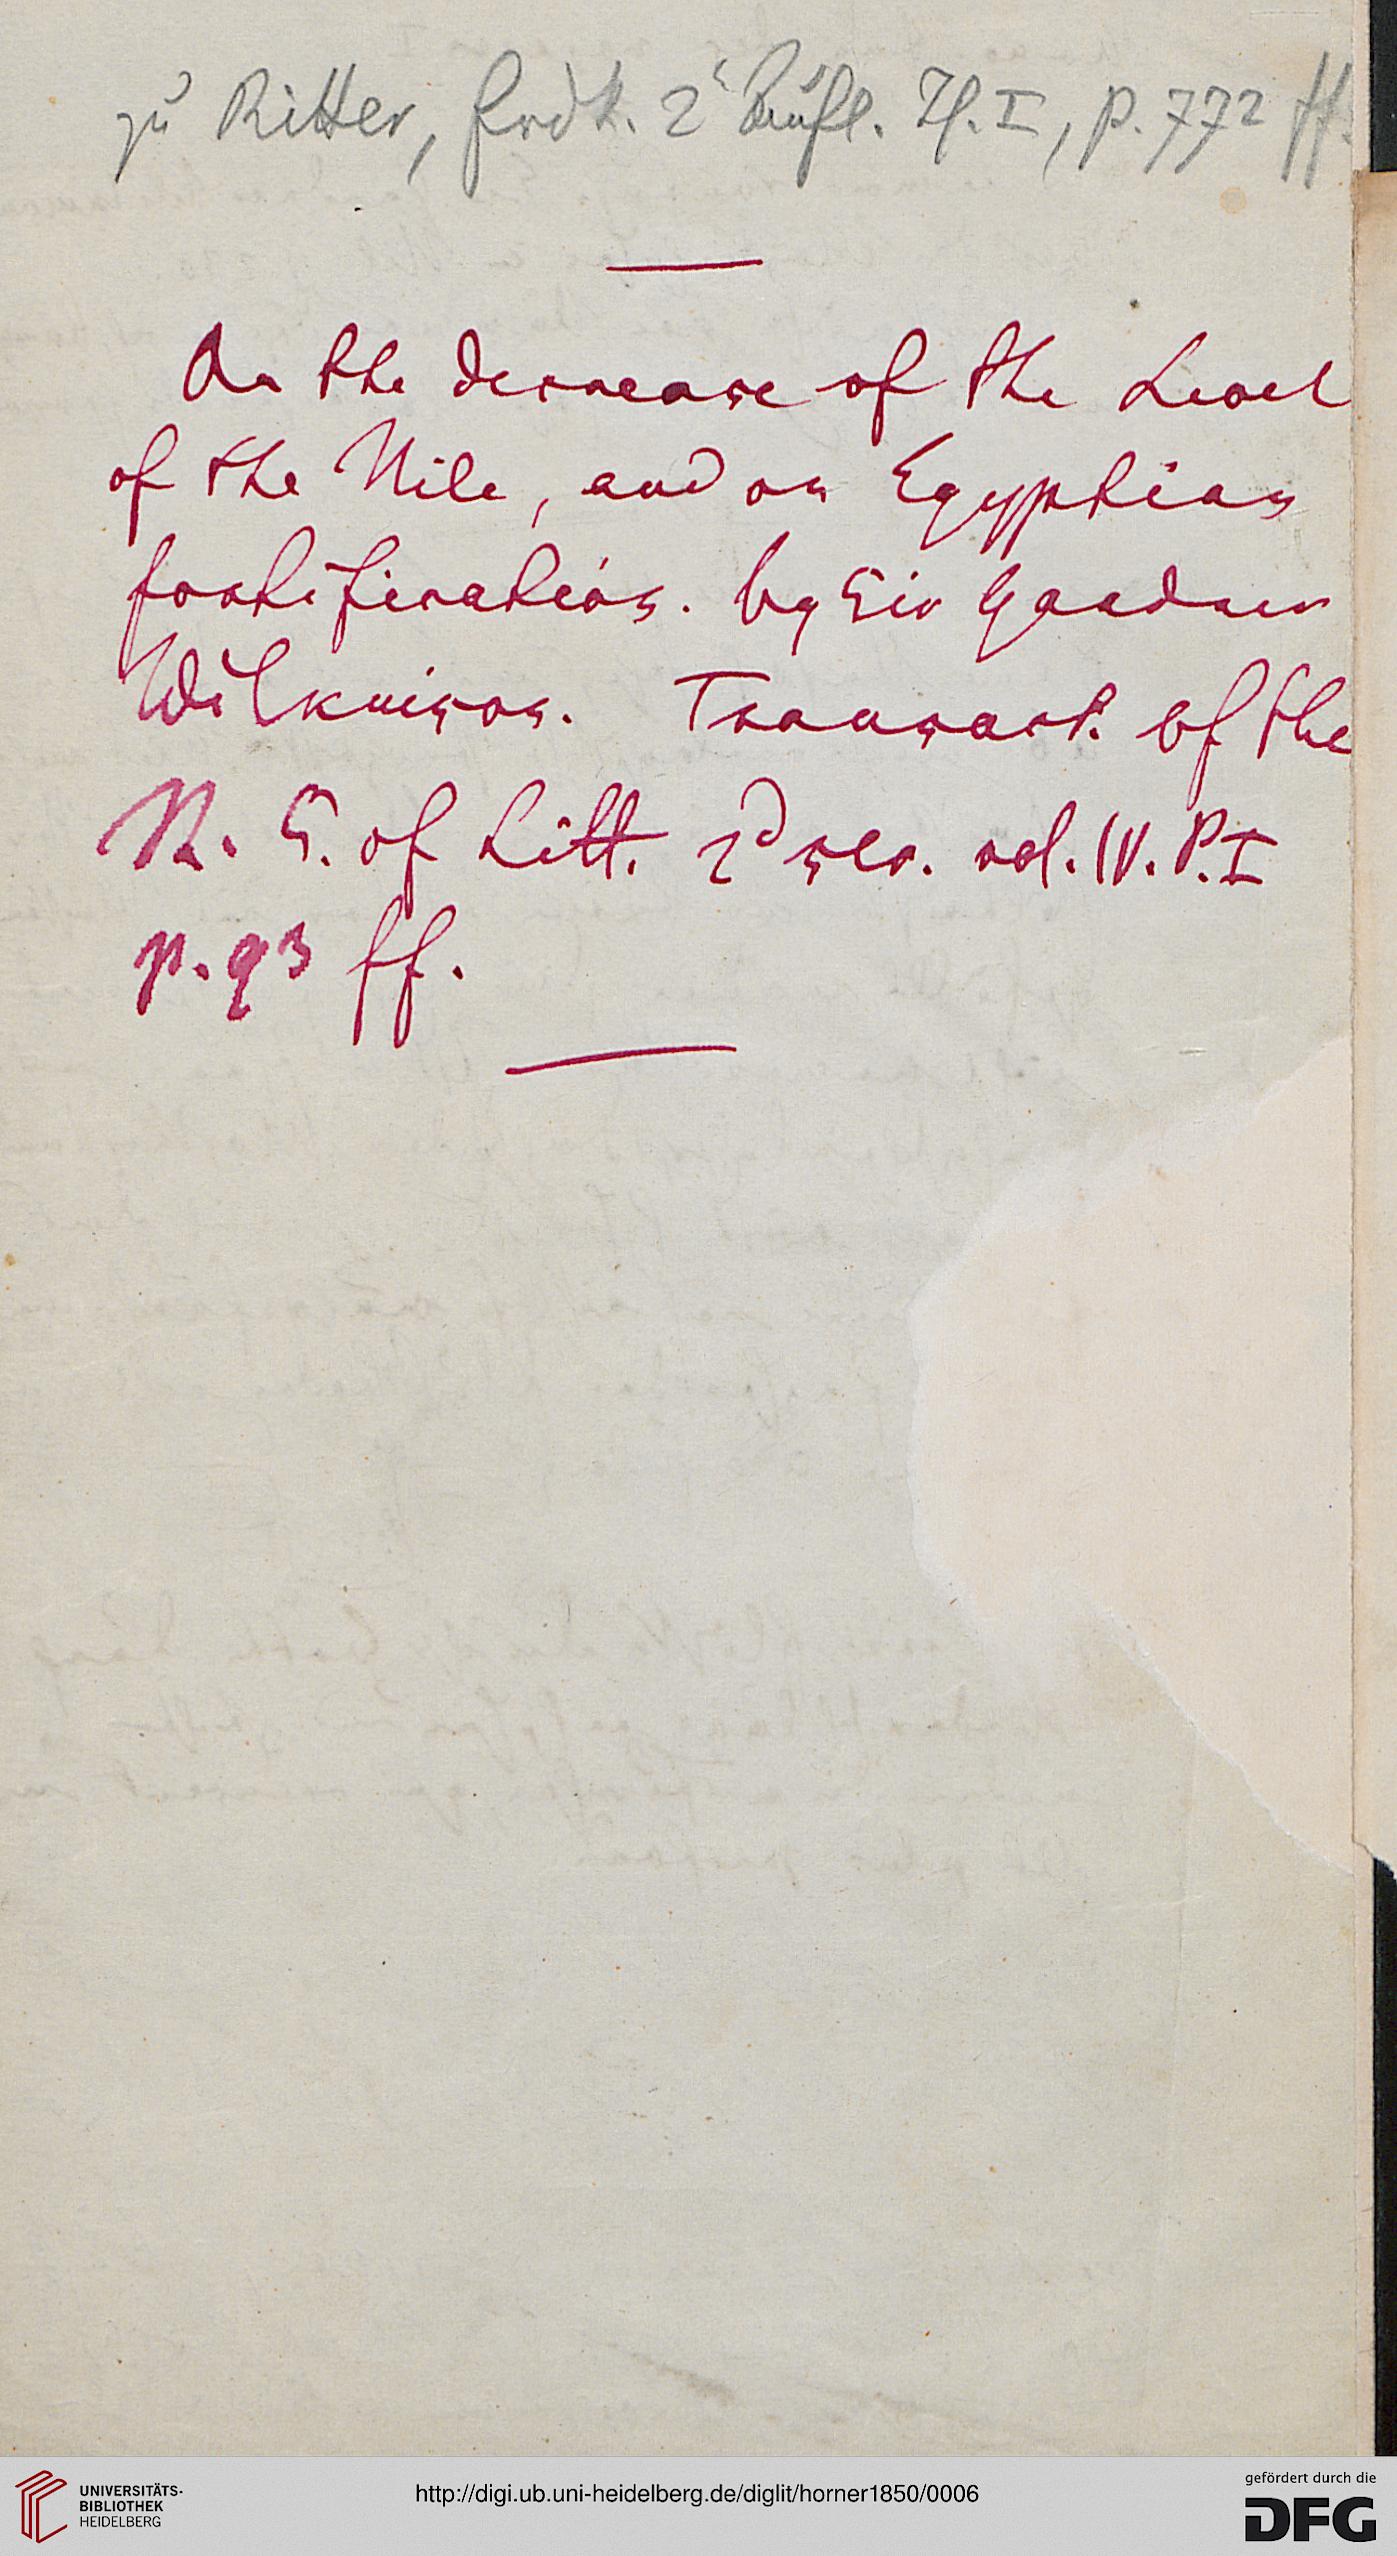 zu Ritter, Erdk. 2ᵗ Aufl. Th. I, p. 772 ff.
On the decrease of the Level
of the Nile, and on Egyptian
fortification. by Sir Gardner
Wilkinson. Transact. of the
R. S. of Litt. 2ᵈ ser. vol. IV. P. I
p. 93 ff.
UNIVERSITÄTS-
BIBLIOTHEK
HEIDELBERG
http://digi.ub.uni-heidelberg.de/diglit/horner1850/0006
gefördert durch die
DFG